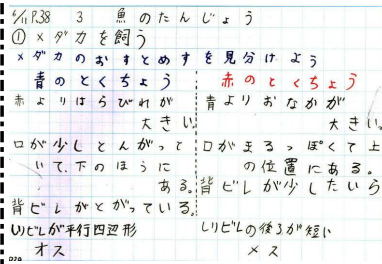 6/11 P.38 3 魚のたんじょう
① メダカを飼う
メダカのおすとめすを見分けよう
青のとくちょう
赤よりはらびれが
大きい。
口が少しとんがっと
いて、下のほうに
ある。
背ビレがとがっている。
しりビレが平行四辺形
オス
赤のとくちょう
青よりおなかが
大きい。
口がまるっぽくて上
の位置にある。
背ビレが少したいら
しりビレの後ろが短い
メス